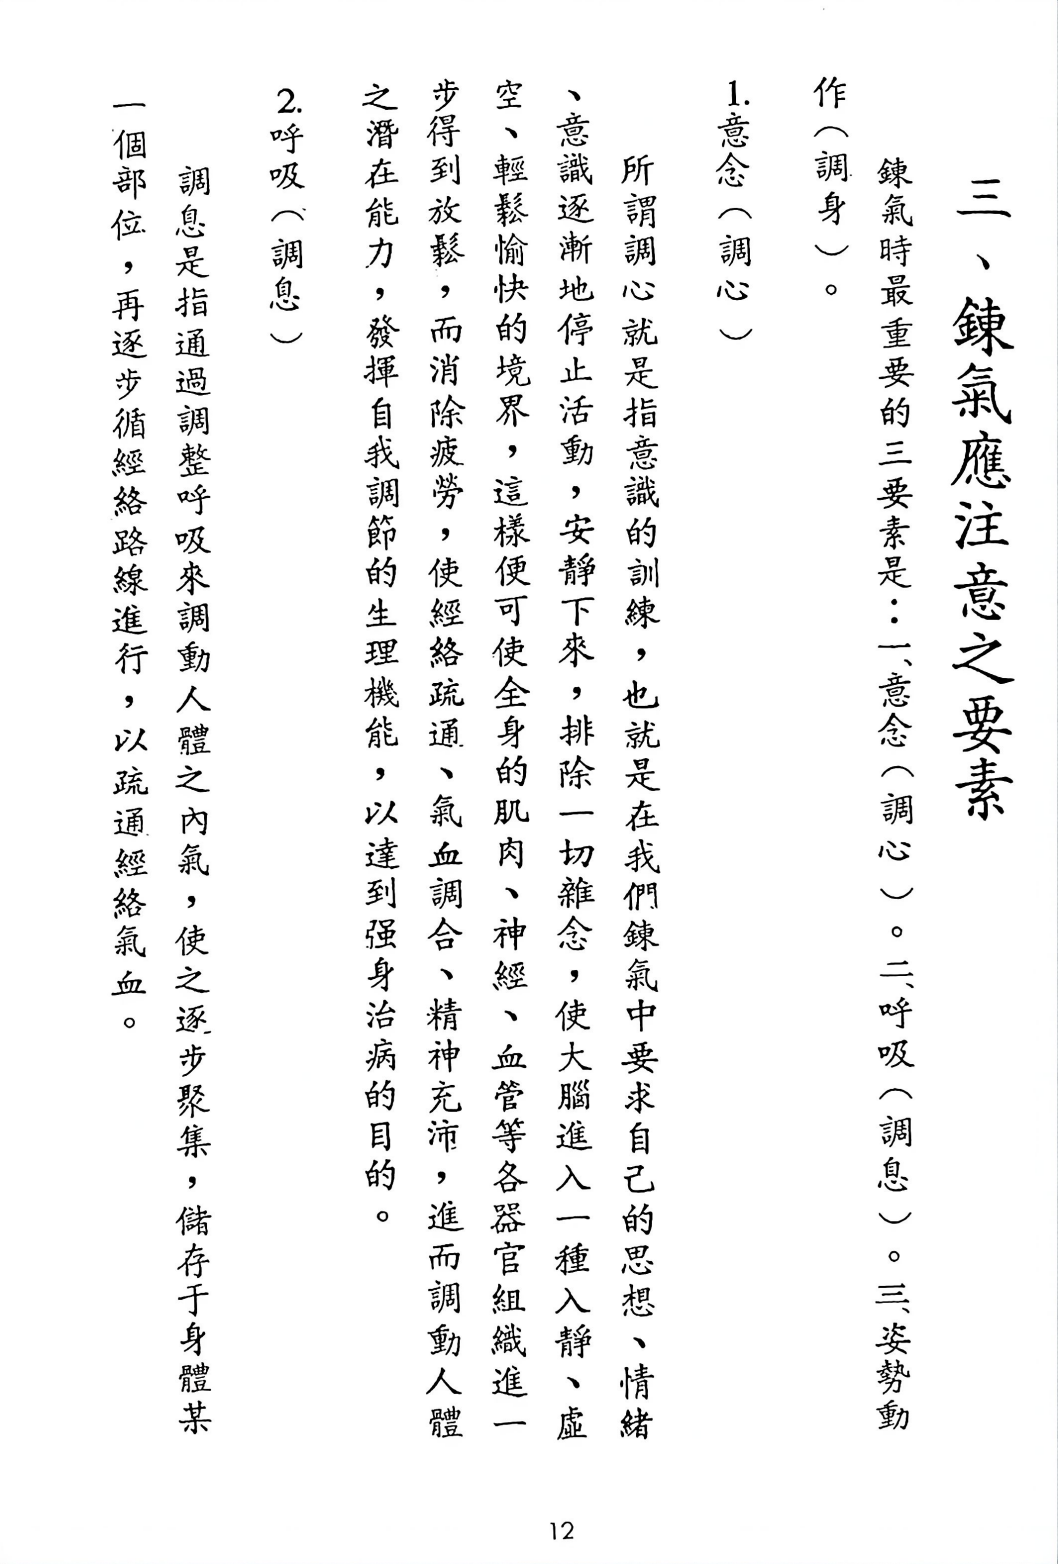 三、鍊氣應注意之要素
鍊氣時最重要的三要素是：一、意念（調心）。二、呼吸（調息）。三、姿勢動
作（調身）。
1.意念（調心）
所謂調心就是指意識的訓練，也就是在我們鍊氣中要求自己的思想、情緒
、意識逐漸地停止活動，安靜下來，排除一切雜念，使大腦進入一種入靜、虛
空、輕鬆愉快的境界，這樣便可使全身的肌肉、神經、血管等各器官組織進一
步得到放鬆，而消除疲勞，使經絡疏通、氣血調合、精神充沛，進而調動人體
之潛在能力，發揮自我調節的生理機能，以達到强身治病的目的。
2.呼吸（調息）
調息是指通過調整呼吸來調動人體之內氣，使之逐步聚集，儲存于身體某
一個部位，再逐步循經絡路線進行，以疏通經絡氣血。
12